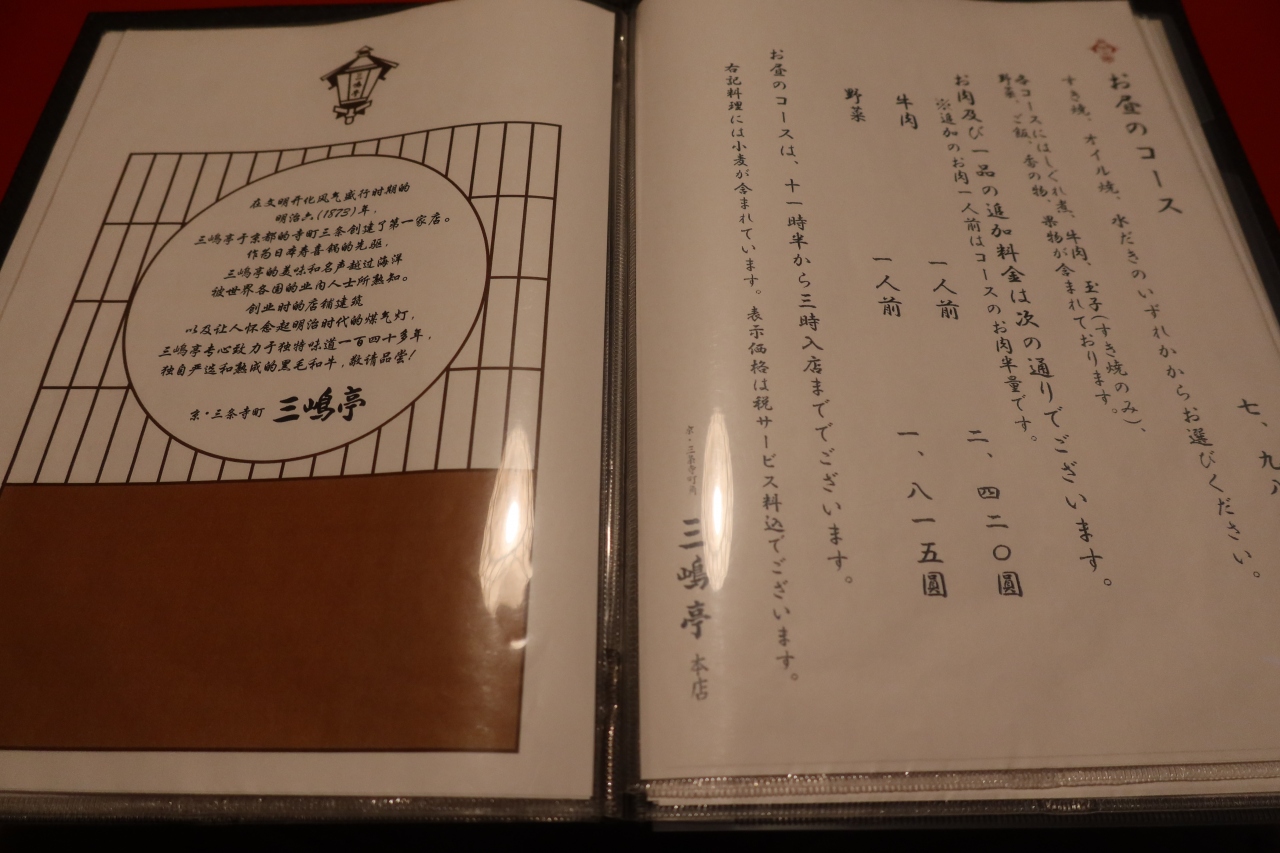 三嶋亭
在文明开化风气盛行时期的
明治六(1873)年，
三嶋亭于京都的寺町三条创建了第一家店。
作为日本寿喜锅的先驱，
三嶋亭的美味和名声越过海洋
被世界各国的业内人士所熟知。
创业时的店铺建筑
以及让人怀念起明治时代的煤气灯，
三嶋亭专心致力于独特味道一百四十多年，
独自严选和熟成的黑毛和牛，敬请品尝！
京・三条寺町 三嶋亭
お昼のコース
七、九八
すき焼、オイル焼、水だきのいずれかからお選びください。
各コースにはしぐれ煮、牛肉、玉子(すき焼のみ)、
野菜、ご飯、香の物、果物が含まれております。
お肉及び一品の追加料金は次の通りでございます。
※追加のお肉一人前はコースのお肉半量です。
牛肉 一人前 二、四二〇圓
野菜 一人前 一、八一五圓
お昼のコースは、十一時半から三時入店まででございます。
右記料理には小麦が含まれています。表示価格は税サービス料込でございます。
京・三条寺町角 三嶋亭 本店